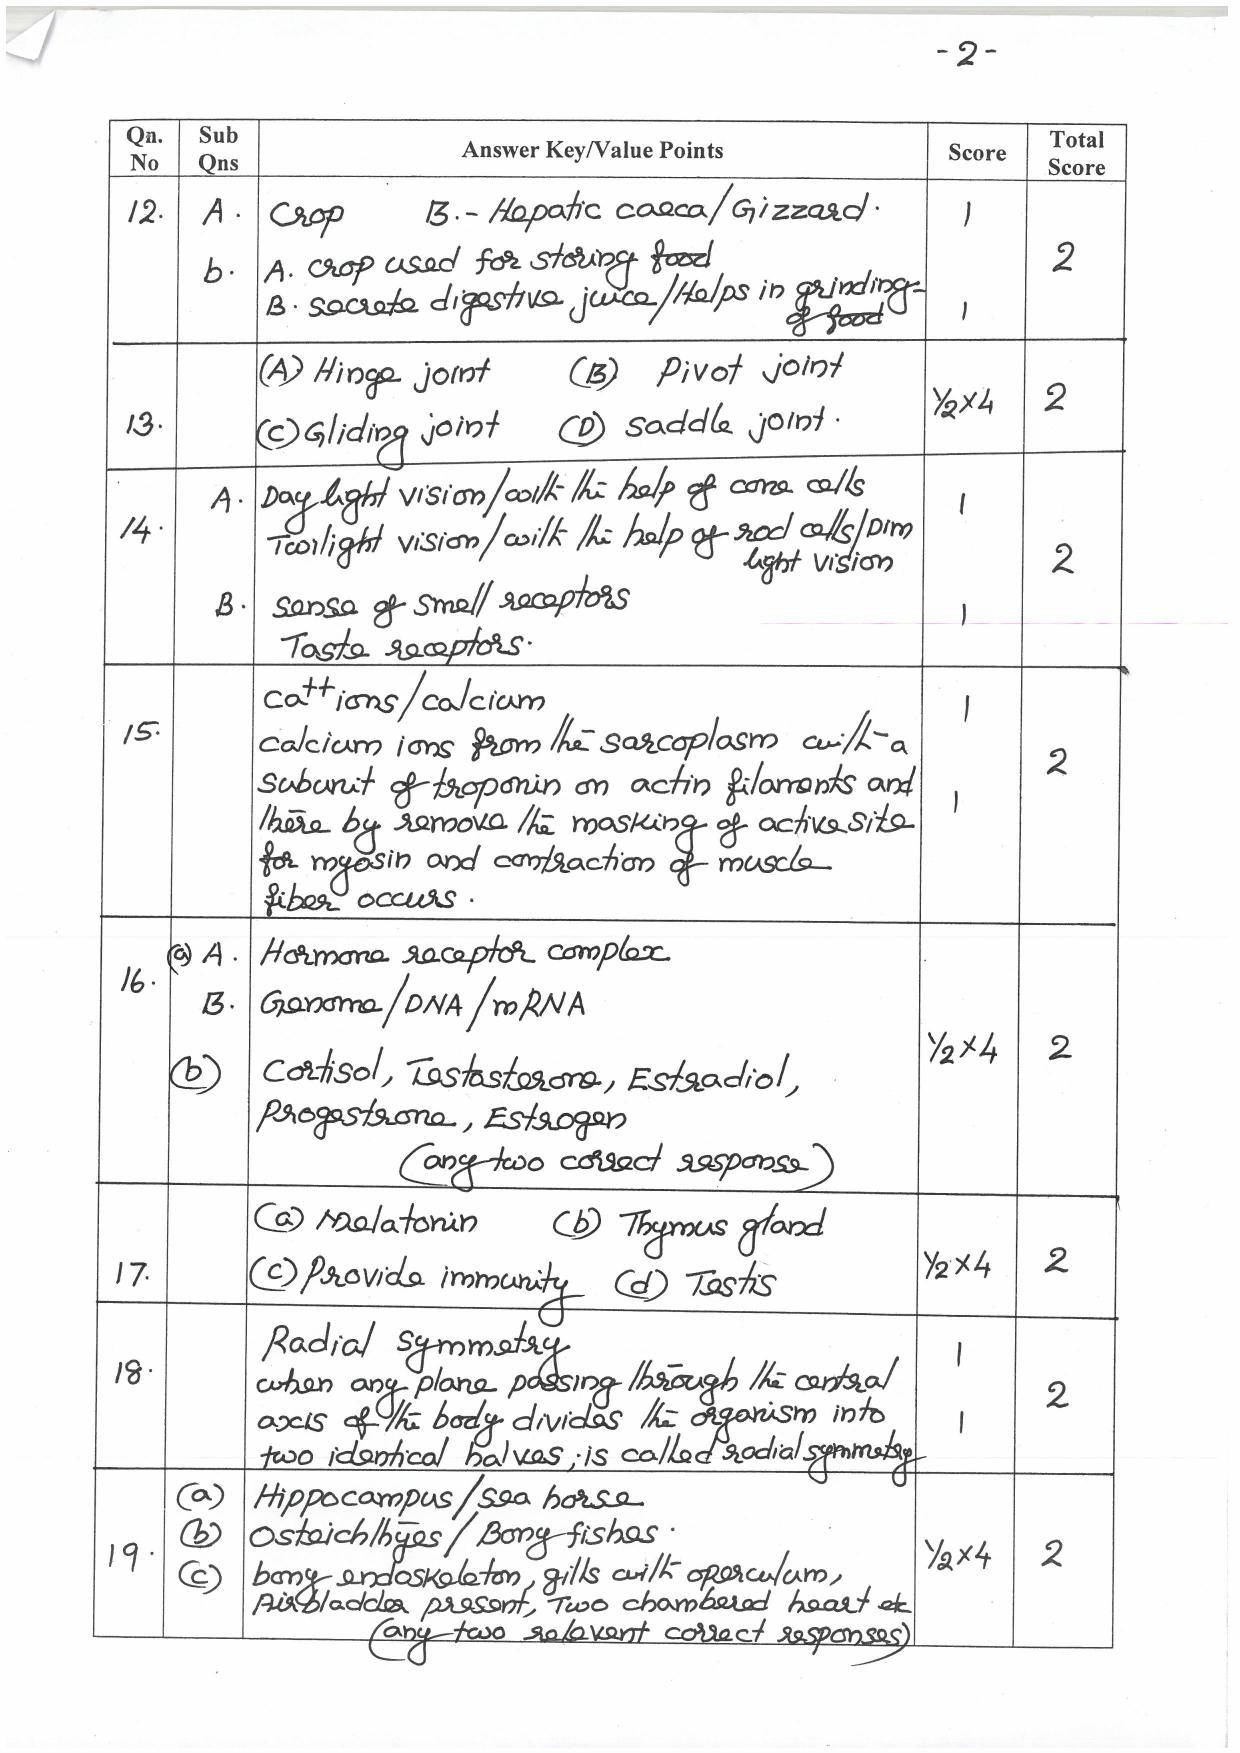 -2-
Qn. No Sub Qns Answer Key/Value Points Score Total Score
12. A. Crop B.- Hepatic caeca/Gizzard. 1
b. A. crop used for storing food 2
B. secrete digestive juice/Helps in grinding
of food 1
(A) Hinge joint (B) Pivot joint
13. ½×4 2
(C) Gliding joint (D) saddle joint.
A. Day light vision/with the help of cone cells 1
14. Twilight vision/with the help of rod cells/Dim
light vision 2
B. sense of smell receptors 1
Taste receptors.
ca++ ions/calcium 1
15. calcium ions from the sarcoplasm with a 2
subunit of troponin on actin filaments and 1
there by remove the masking of active site
for myosin and contraction of muscle
fiber occurs.
(a) A. Hormone receptor complex
16.
B. Genome/DNA/mRNA
½×4 2
(b) Cortisol, Testosterone, Estradiol,
Progestrone, Estrogen
(any two correct response)
(a) Melatonin (b) Thymus gland
17. (c) Provide immunity (d) Testis ½×4 2
Radial symmetry 1
18. when any plane passing through the central 2
axis of the body divides the organism into 1
two identical halves, is called radial symmetry
(a) Hippocampus/sea horse
(b) Osteichthyes/Bony fishes.
19. ½×4 2
(c) bony endoskeleton, gills with operculum,
Airbladder present, Two chambered heart etc
(any two relevent correct responses)